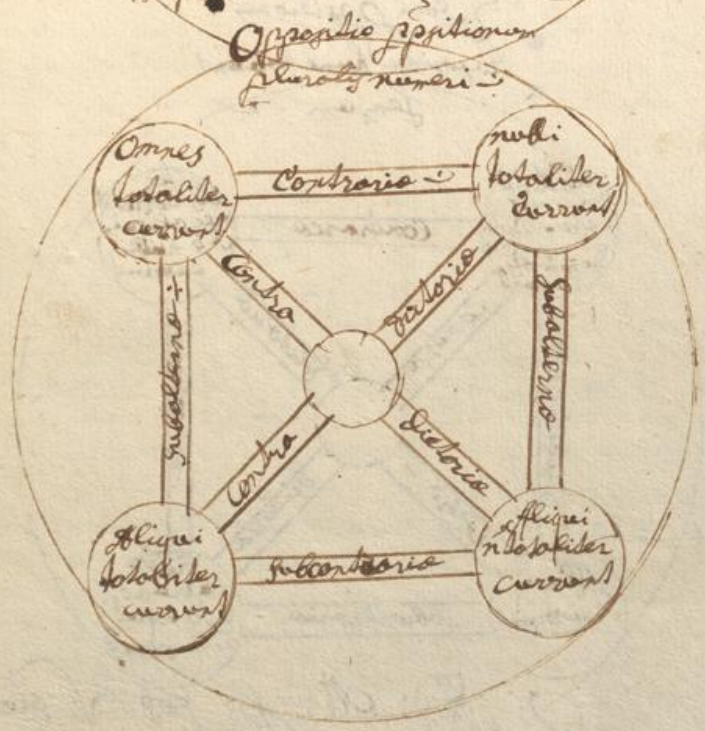 Oppositio ppsitionum
pluralis numeri
Omnes
totaliter
currunt
Contrariæ
nulli
totaliter
currunt
Contra
dictoriæ
Subalternæ
Subalternæ
Contra
dictoriæ
Aliqui
totaliter
currunt
Subcontrariæ
Aliqui
n totaliter
currunt